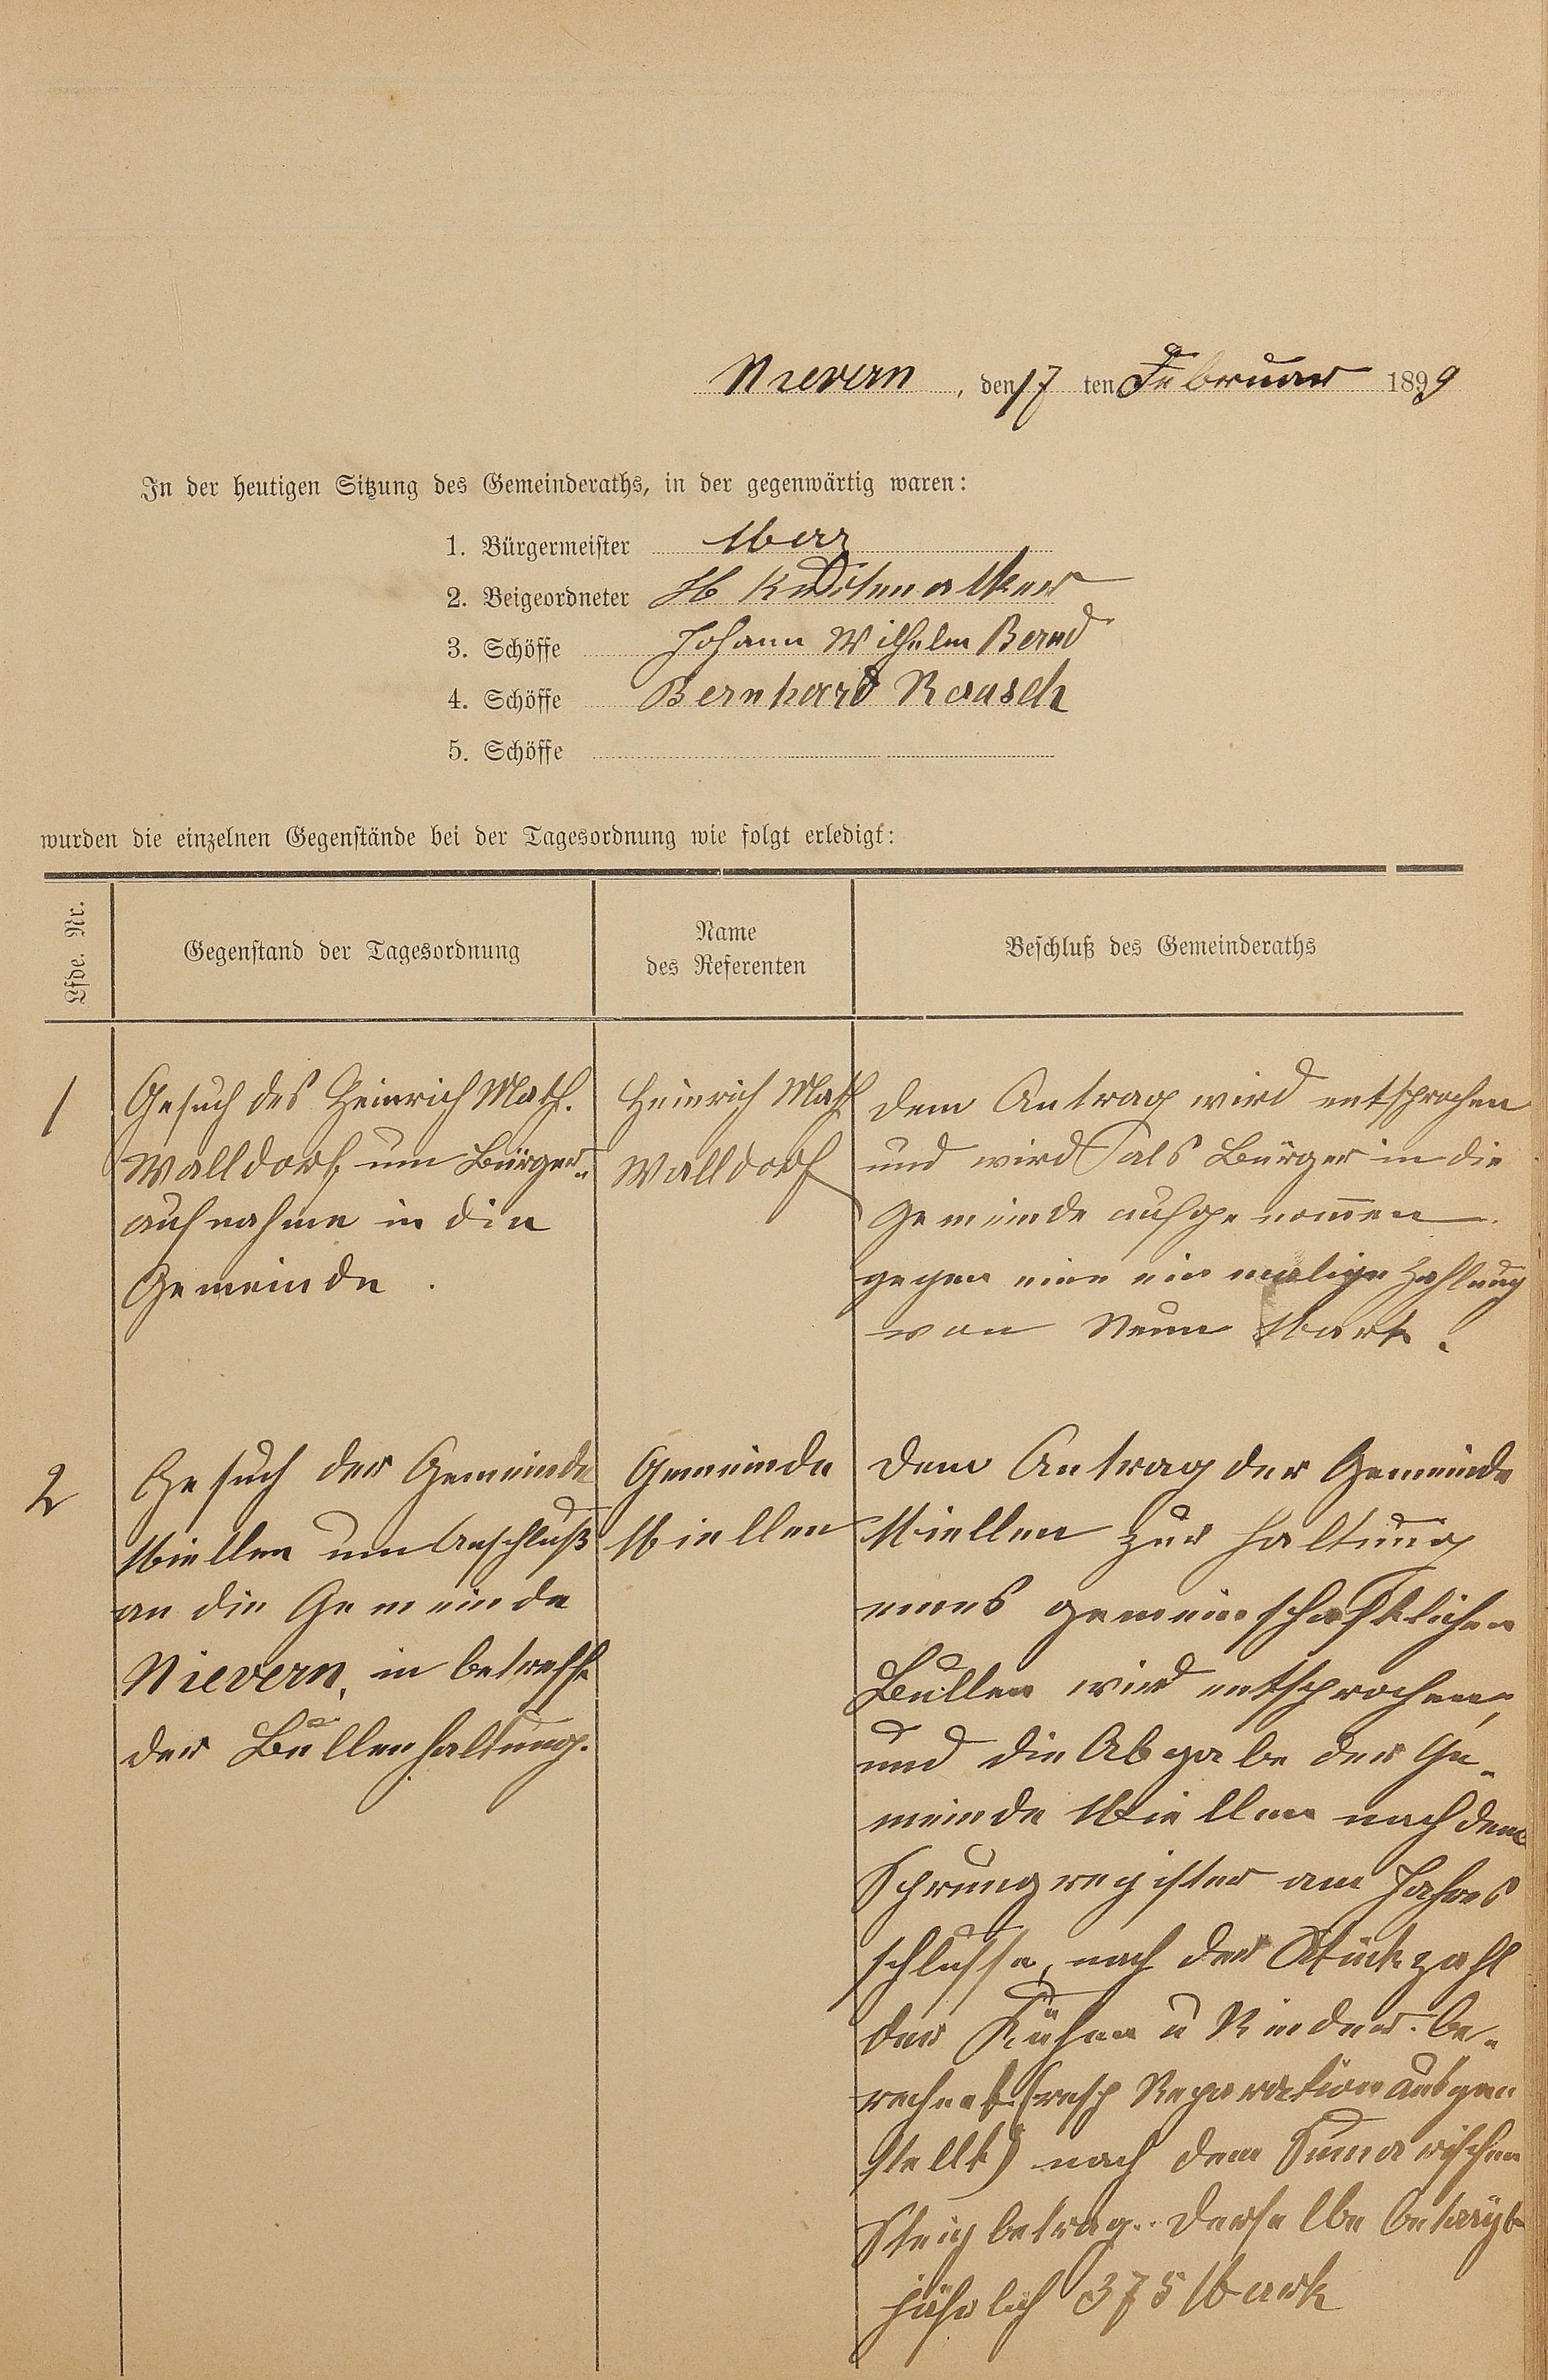 Nievern, den 17 ten Februar 1899
In der heutigen Sitzung des Gemeinderaths, in der gegenwärtig waren:
1. Bürgermeister
2. Beigeordneter H
3. Schöffe Johann Wilhelm Bernd
4. Schöffe Bernhard Rausch
5. Schöffe
wurden die einzelnen Gegenstände bei der Tagesordnung wie folgt erledigt:
Lfde. Nr.
Gegenstand der Tagesordnung
Name
des Referenten
Beschluß des Gemeinderaths
1
Gesuch des Heinrich Math.
Walldorf um Bürger-
aufnahme in die
Gemeinde.
Heinrich Math
Walldorf
Dem Antrag wird entsprochen
und wird als Bürger in die
Gemeinde aufgenommen
gegen eine einmalige Zahlung
von Neun Mark.
2
Gesuch der Gemeinde
Miellen um Anschluß
an die Gemeinde
Nievern, in betreff
der Bullenhaltung.
Gemeinde
Miellen
Dem Antrag der Gemeinde
Miellen zur Haltung
eines gemeinschaftlichen
Bullen wird entsprochen,
und die Abgabe der Ge-
meinde Miellen nach dem
Sprungregister am Jahres
schlusse, nach der Stückzahl
der Kühen u Rinder be-
rechnet (resp Reparation
stellt) nach dem Sumarischen
Steigbetrag. Derselbe beträgt
jährlich 375 Mark